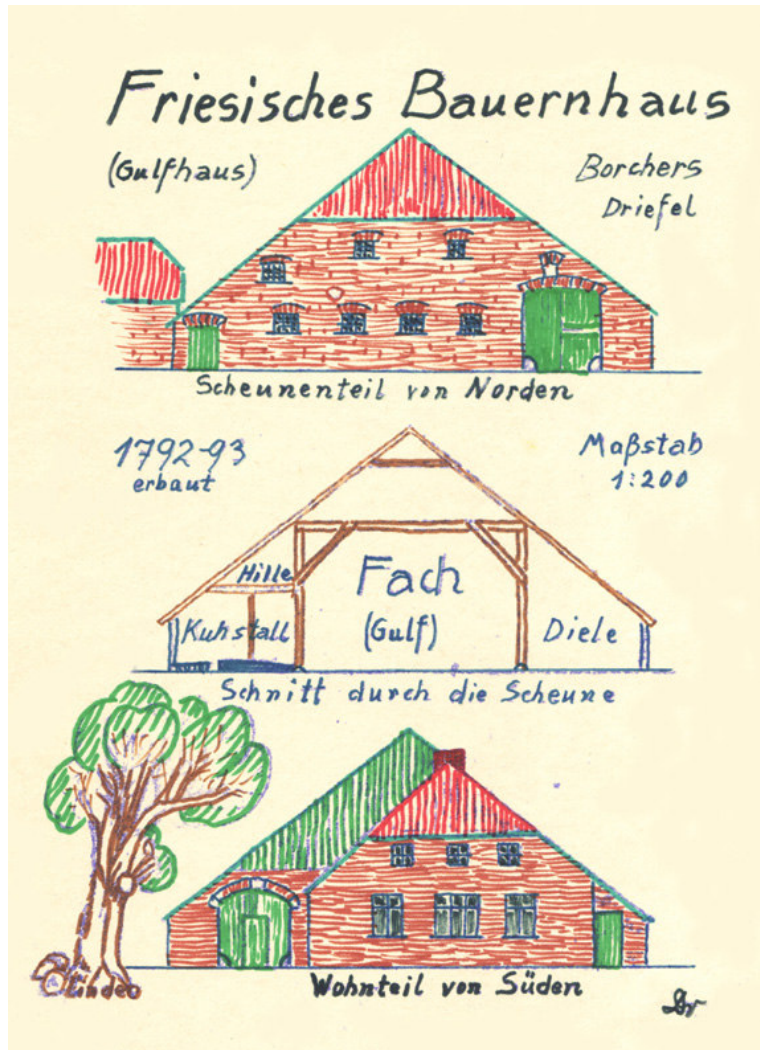 Friesisches Bauernhaus
(Gulfhaus)
Borchers
Driefel
Scheunenteil von Norden
1792-93
erbaut
Maßstab
1:200
Hille
Fach
(Gulf)
Kuhstall
Diele
Schnitt durch die Scheune
Linde
Wohnteil von Süden